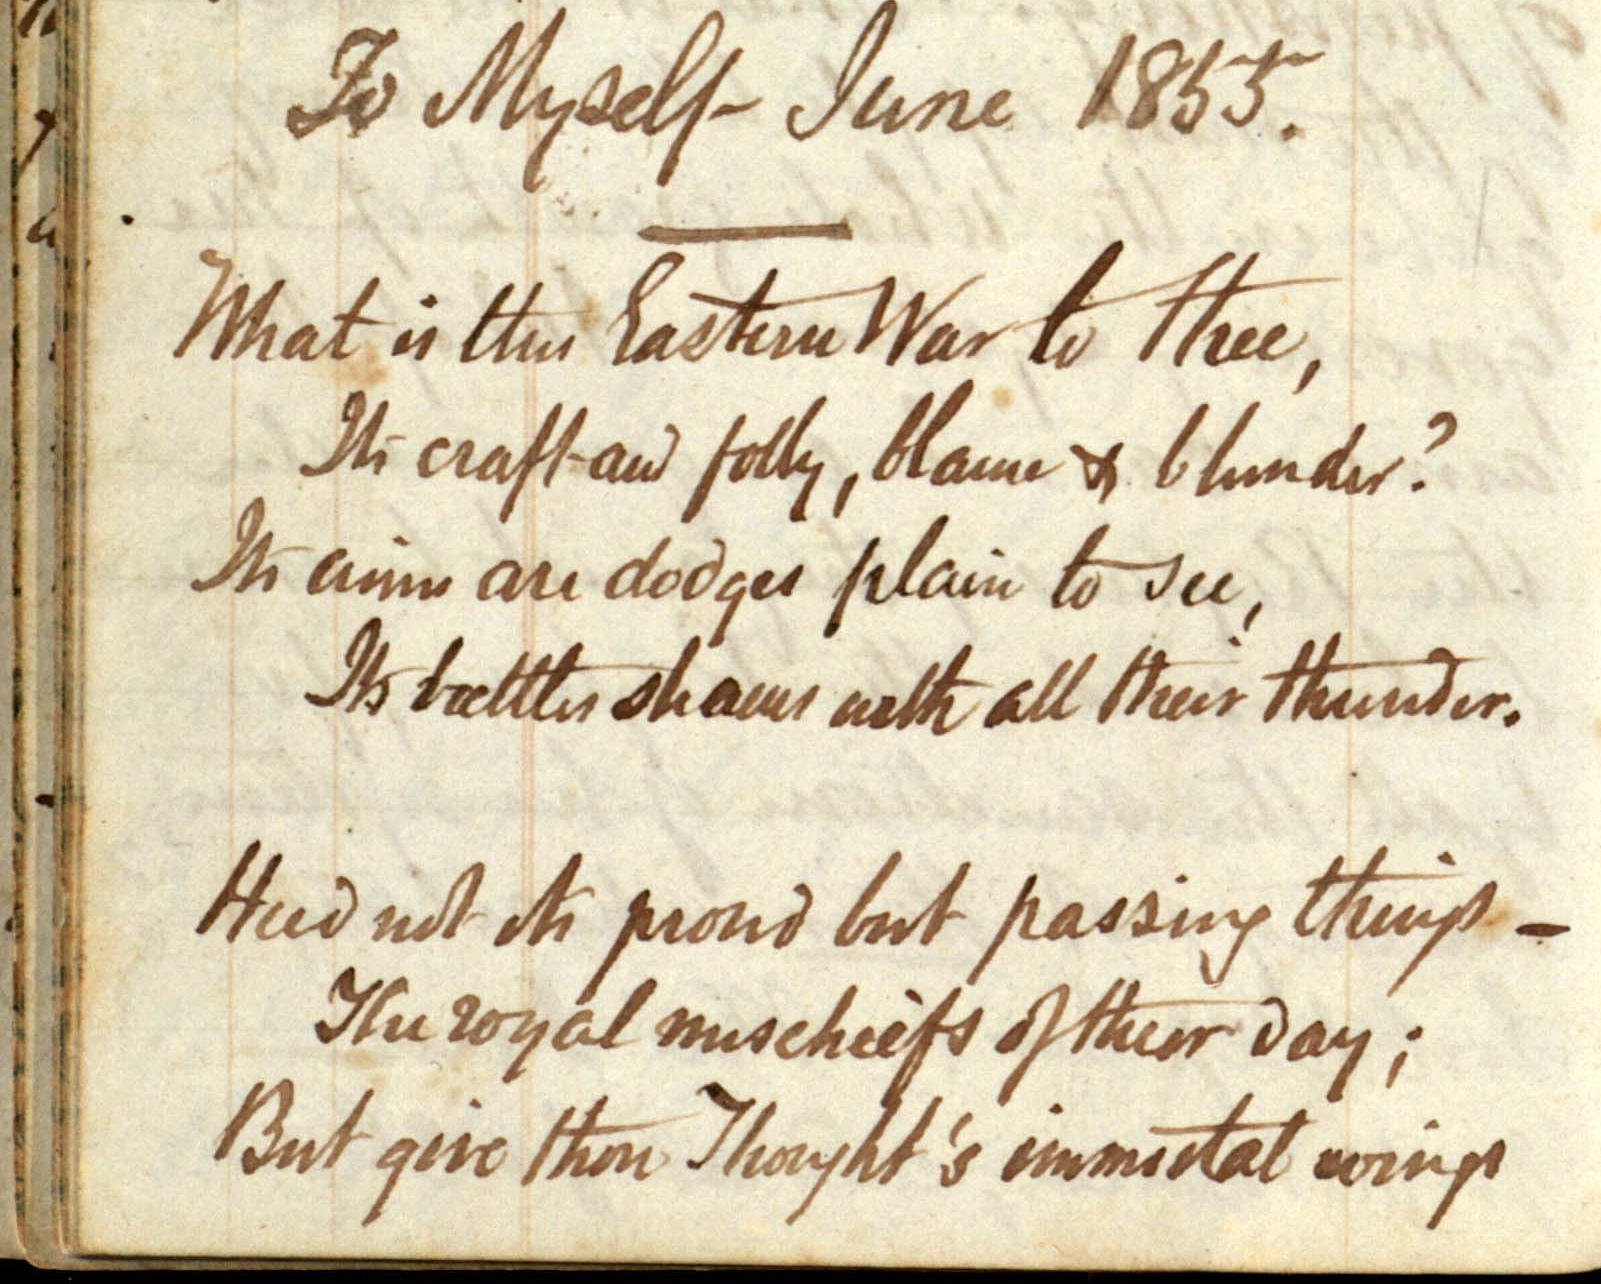 To Myself June 1855.
What is this Eastern War to thee,
Its craft and folly, blame & blunder?
Its aims are dodges plain to see,
Its battles shams with all their thunder.
Heed not its proud but passing things –
The royal mischiefs of their day;
But give thou Thought's immortal wings